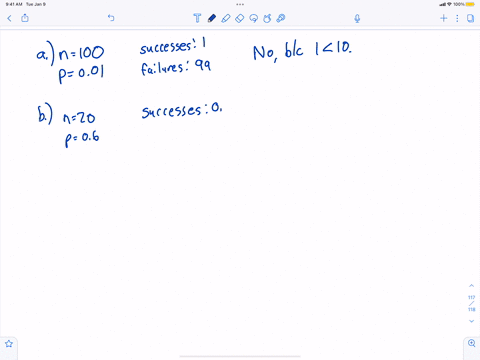 9:41 AM Tue Jan 9
100%
a.) n=100 successes: 1 No, b/c 1<10.
p=0.01 failures: 99
b.) n=20 successes: 0.
p=0.6
117
/
118